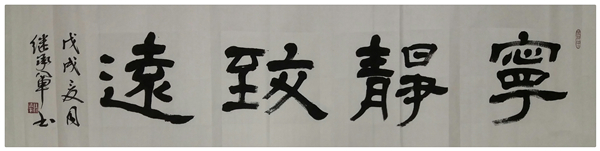 寧靜致遠
戊戌夏月
继军书